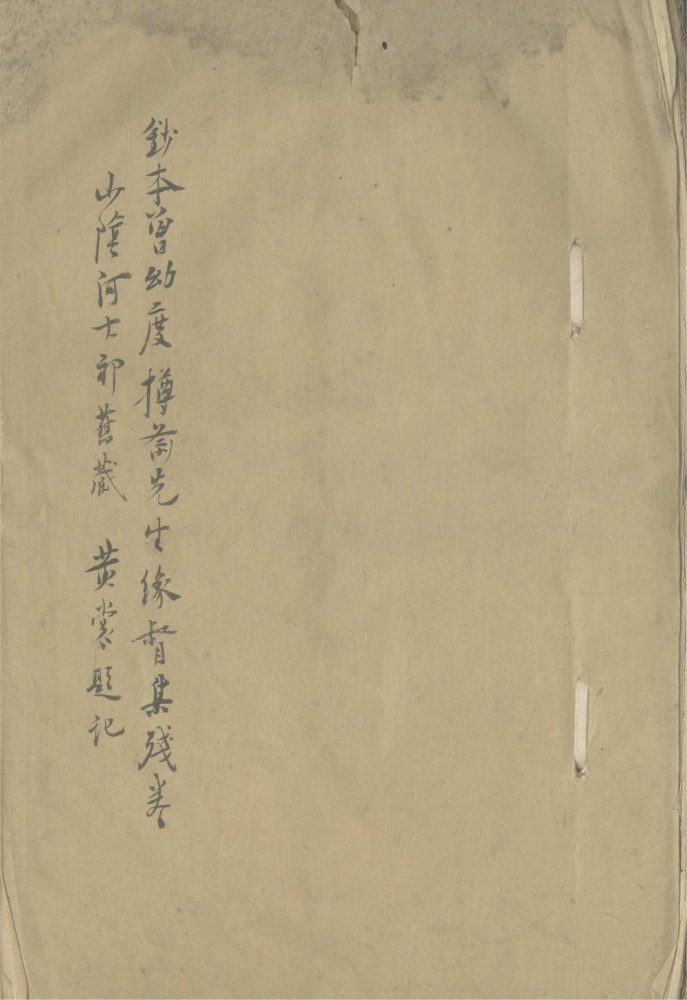 鈔本曾幼度撙齋先生緣督集殘卷
山陰河士祁舊藏　黃裳題記